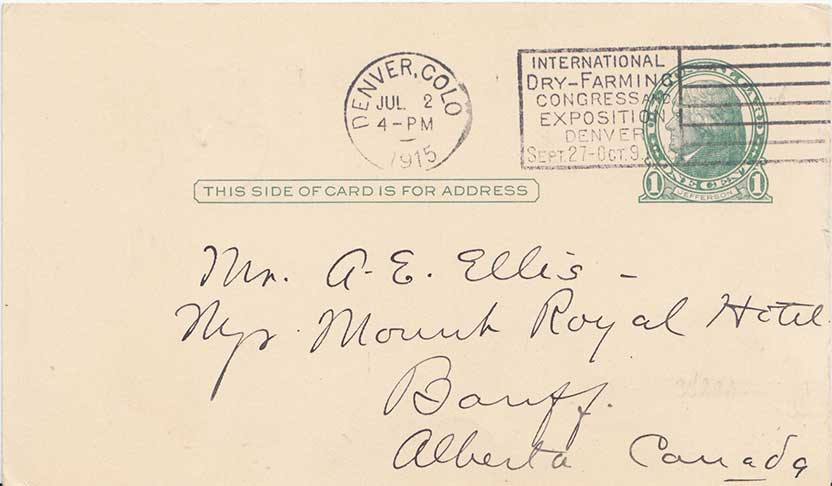 DENVER, COLO
JUL 2
4-PM
1915
INTERNATIONAL
DRY-FARMING
CONGRESS AND
EXPOSITION
DENVER
SEPT. 27-OCT. 9.
POSTAL CARD
ONE CENT
1 JEFFERSON 1
THIS SIDE OF CARD IS FOR ADDRESS
Mr. A. E. Ellis –
Mgr. Mount Royal Hotel.
Banff.
Alberta Canada